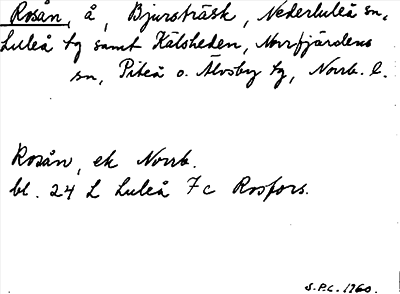 Rosån, å, Bjursträsk, Nederluleå sn,
Luleå tg samt Hålsheden, Norrfjärdens
sn, Piteå o. Älvsby tg, Norrb. l.
Rosån, ek Norrb.
bl. 24 L Luleå 7c Rosfors.
S.P.C. 1960.